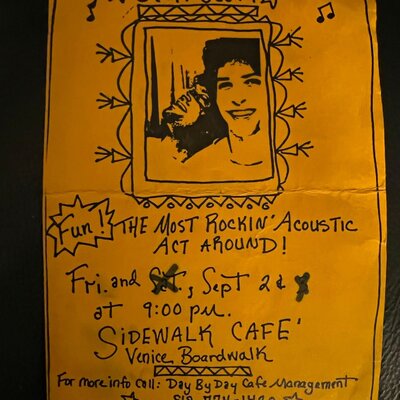 Fun!
THE MOST ROCKIN' ACOUSTIC
ACT AROUND!
Fri. and Sat, Sept 2 &
at 9:00 pm.
SIDEWALK CAFE'
Venice Boardwalk
For more info call: Day By Day Cafe Management